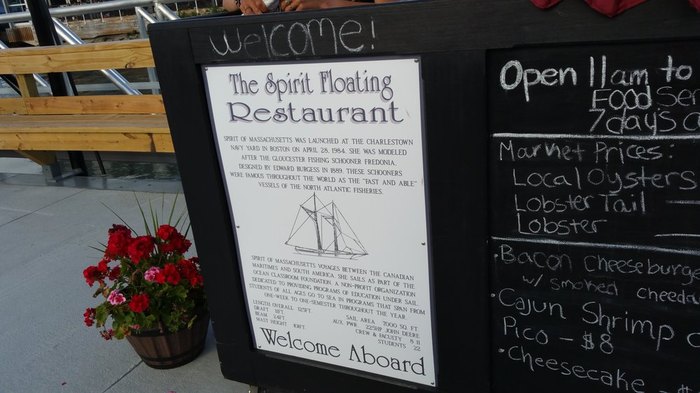 Welcome!
The Spirit Floating
Restaurant
SPIRIT OF MASSACHUSETTS WAS LAUNCHED AT THE CHARLESTOWN
NAVY YARD IN BOSTON ON APRIL 28, 1984. SHE WAS MODELED
AFTER THE GLOUCESTER FISHING SCHOONER FREDONIA,
DESIGNED BY EDWARD BURGESS IN 1889. THESE SCHOONERS
WERE FAMOUS THROUGHOUT THE WORLD AS THE "FAST AND ABLE"
VESSELS OF THE NORTH ATLANTIC FISHERIES.
SPIRIT OF MASSACHUSETTS VOYAGES BETWEEN THE CANADIAN
MARITIMES AND SOUTH AMERICA. SHE SAILS AS PART OF THE
OCEAN CLASSROOM FOUNDATION, A NON-PROFIT ORGANIZATION
DEDICATED TO PROVIDING PROGRAMS OF EDUCATION UNDER SAIL.
STUDENTS OF ALL AGES GO TO SEA IN PROGRAMS THAT SPAN FROM
ONE-WEEK TO ONE-SEMESTER THROUGHOUT THE YEAR.
LENGTH OVERALL 125FT SAIL AREA 7000 SQ. FT.
DRAFT 11FT AUX. PWR 225HP JOHN DEERE
BEAM 24FT CREW & FACULTY 8-11
MAST HEIGHT 103FT STUDENTS 22
Welcome Aboard
Open 11am to
Food Ser
7 days a
Market Prices:
Local Oysters
Lobster Tail
Lobster
• Bacon Cheeseburg
w/ smoked chedda
• Cajun Shrimp
Pico - $8
• Cheesecake -